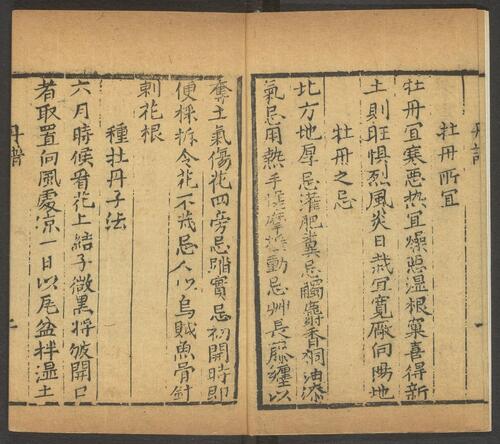 牡丹所宜
牡丹宜寒惡熱宜燥惡湿根窠喜得新
土則旺惧烈風炎日栽宜寬厰向陽地
牡丹之忌
北方地厚忌灌肥糞忌觸麝香桐油漆
氣忌用熱手搓摩搖動忌艸長藤纏以
奪土氣傷花四旁忌踏實忌初開時即
便採折令花不茂忌人以烏賊魚骨針
刺花根
種牡丹子法
六月時候看花上結子微黑將皴開口
者取置向風處凉一日以瓦盆拌湿土